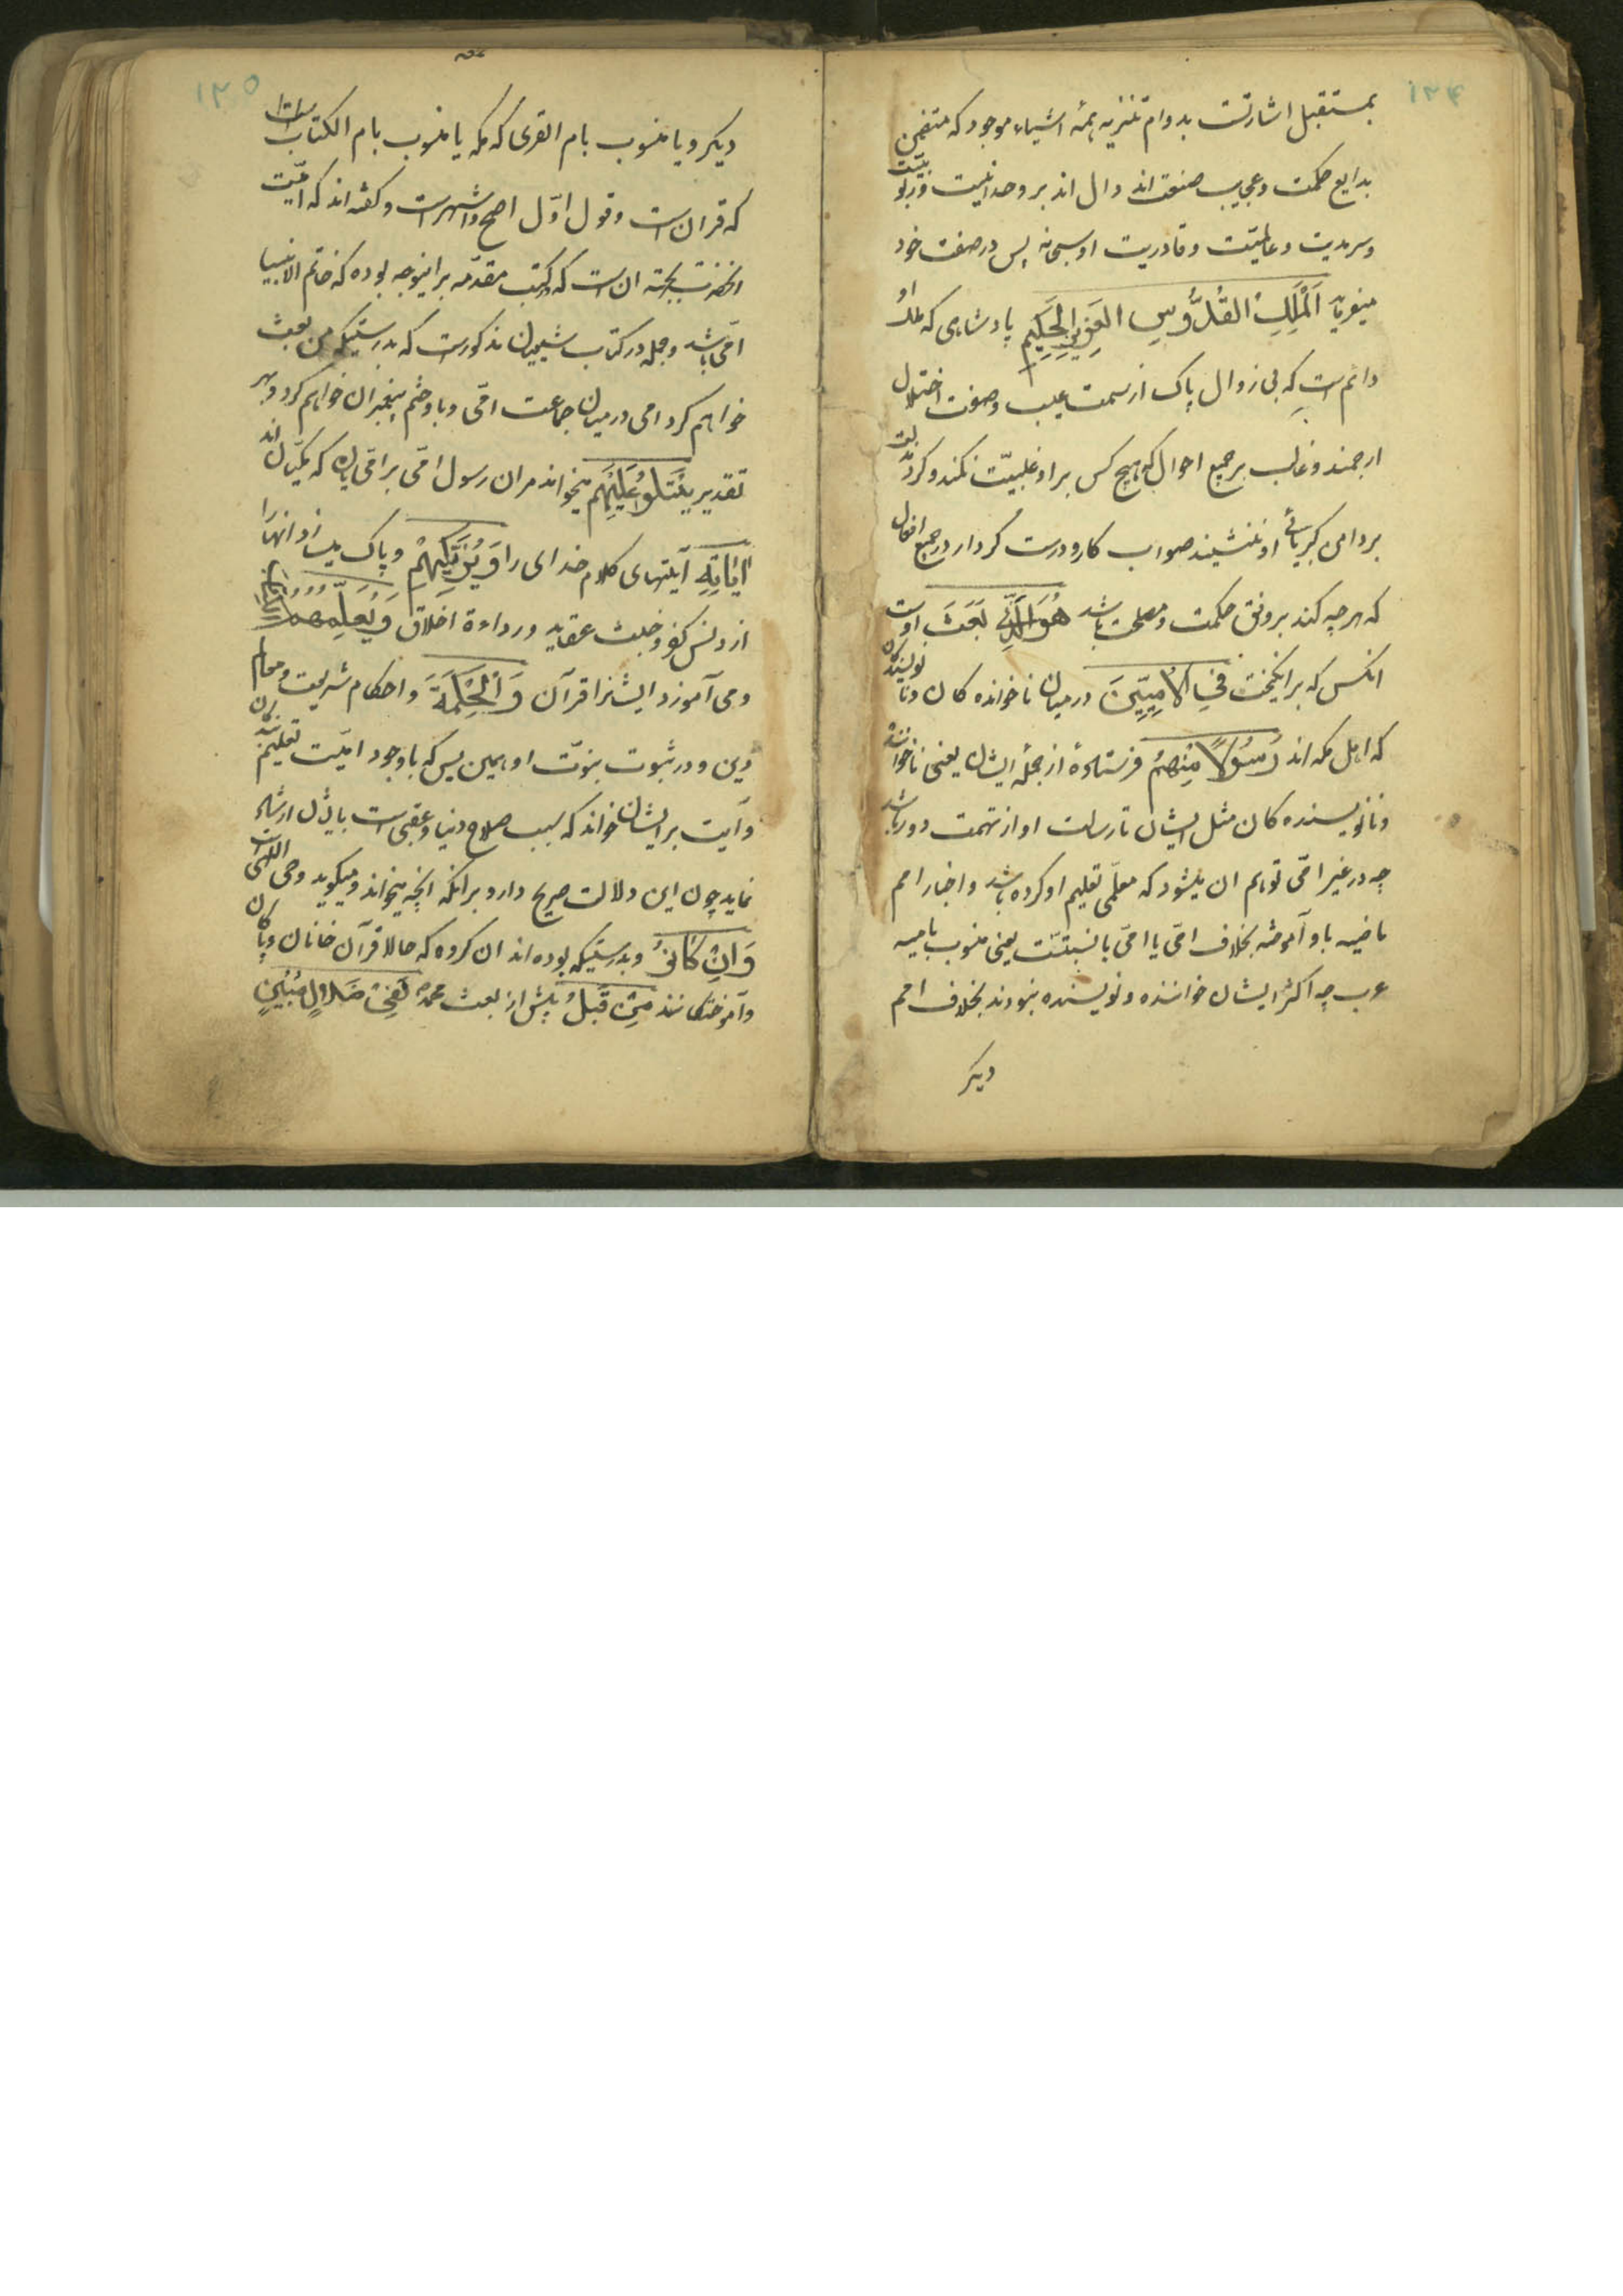 ۱۲۴
بمستقبل اشارتست بدوام تنزیه همهٔ اشیاء موجود که متضمن
بدایع حکمت و عجایب صنعت اند دال اند بر وحدانیت و ربوبیّت
و سرمدیت و عالمیّت و قادریت او سبحانه پس در صفت خود
میفرماید اَلْمَلِكِ الْقُدُّوسِ الْعَزِیزِ الْحَكِیمِ پادشاهی که ملک او
دایم است که بی زوال پاک از سمت عیب و صفت اختلال
ارجمند و غالب بر جمیع احوال که هیچ کس بر او غلبیّت نکند و کرد
بر دامن کبریائی او ننشیند صواب کار و درست کردار در جمیع افعال
که هرچه کند بر وفق حکمت و مصلحت باشد هُوَ الَّذِی بَعَثَ اوست
انکس که برانکیخت فِی الْاُمِّیِّینَ در میان ناخوانده کان و نانویسنده کان
که اهل مکه اند رَسُولًا مِنْهُمْ فرستادهٔ از جملهٔ ایشان یعنی ناخوانده
و نانویسنده کان مثل ایشان تا رسالت او از تهمت دور باشد
چه در غیر امّی توهم ان میشود که معلّمی تعلیم او کرده باشد و اخبار امم
ماضیه باو آموخته بخلاف امّی یا امّی بانسبتست یعنی منسوب بامیه
عرب چه اکثر ایشان خواننده و نویسنده نبودند بخلاف امم
دیکر
۱۲۵
دیکر و یا منسوب بام القری که مکه یا منسوب بام الکتاب است
که قران است و قول اوّل اصح و اشهر است و کفته اند که امّیت
انحضرت بجهت ان است که در کتب مقدّمه براینوجه بوده که خاتم الانبیا
امّی باشد و جمله در کتاب شعیا مذکور است که بدرستیکه من بعث
خواهم کرد امی در میان جماعت امّی و باو ختم پیغمبران خواهم کرد و بهر
تقدیر یَتْلُوا عَلَیْهِمْ میخواند مران رسول امّی بر امّیان که مکیان اند
اٰیَاتِهِ آیتهای کلام خدای را وَ یُزَكِّیهِمْ و پاک میسازد انها را
از دنس کفر و خبث عقاید و رداءة اخلاق وَ یُعَلِّمُهُمُ الْكِتَابَ
و می آموزد ایشانرا قرآن وَ الْحِكْمَةَ و احکام شریعت و معالم
دین و در ثبوت نبوّت او همین بس که باوجود امیّت تعلیم
و آیت بر ایشان خواند که سبب صلاح دنیا و عقبی است بایشان ارشاد
نماید چون این دلالت صریح دارد بر انکه انچه میخواند و میکوید وحی الهی است
وَ اِنْ كَانُوا و بدرستیکه بوده اند ان کروه که حالا قرآن خانان و پاکان
و آموختکانند مِنْ قَبْلُ پیش از بعث محمد لَفِی ضَلَالٍ مُبِینٍ